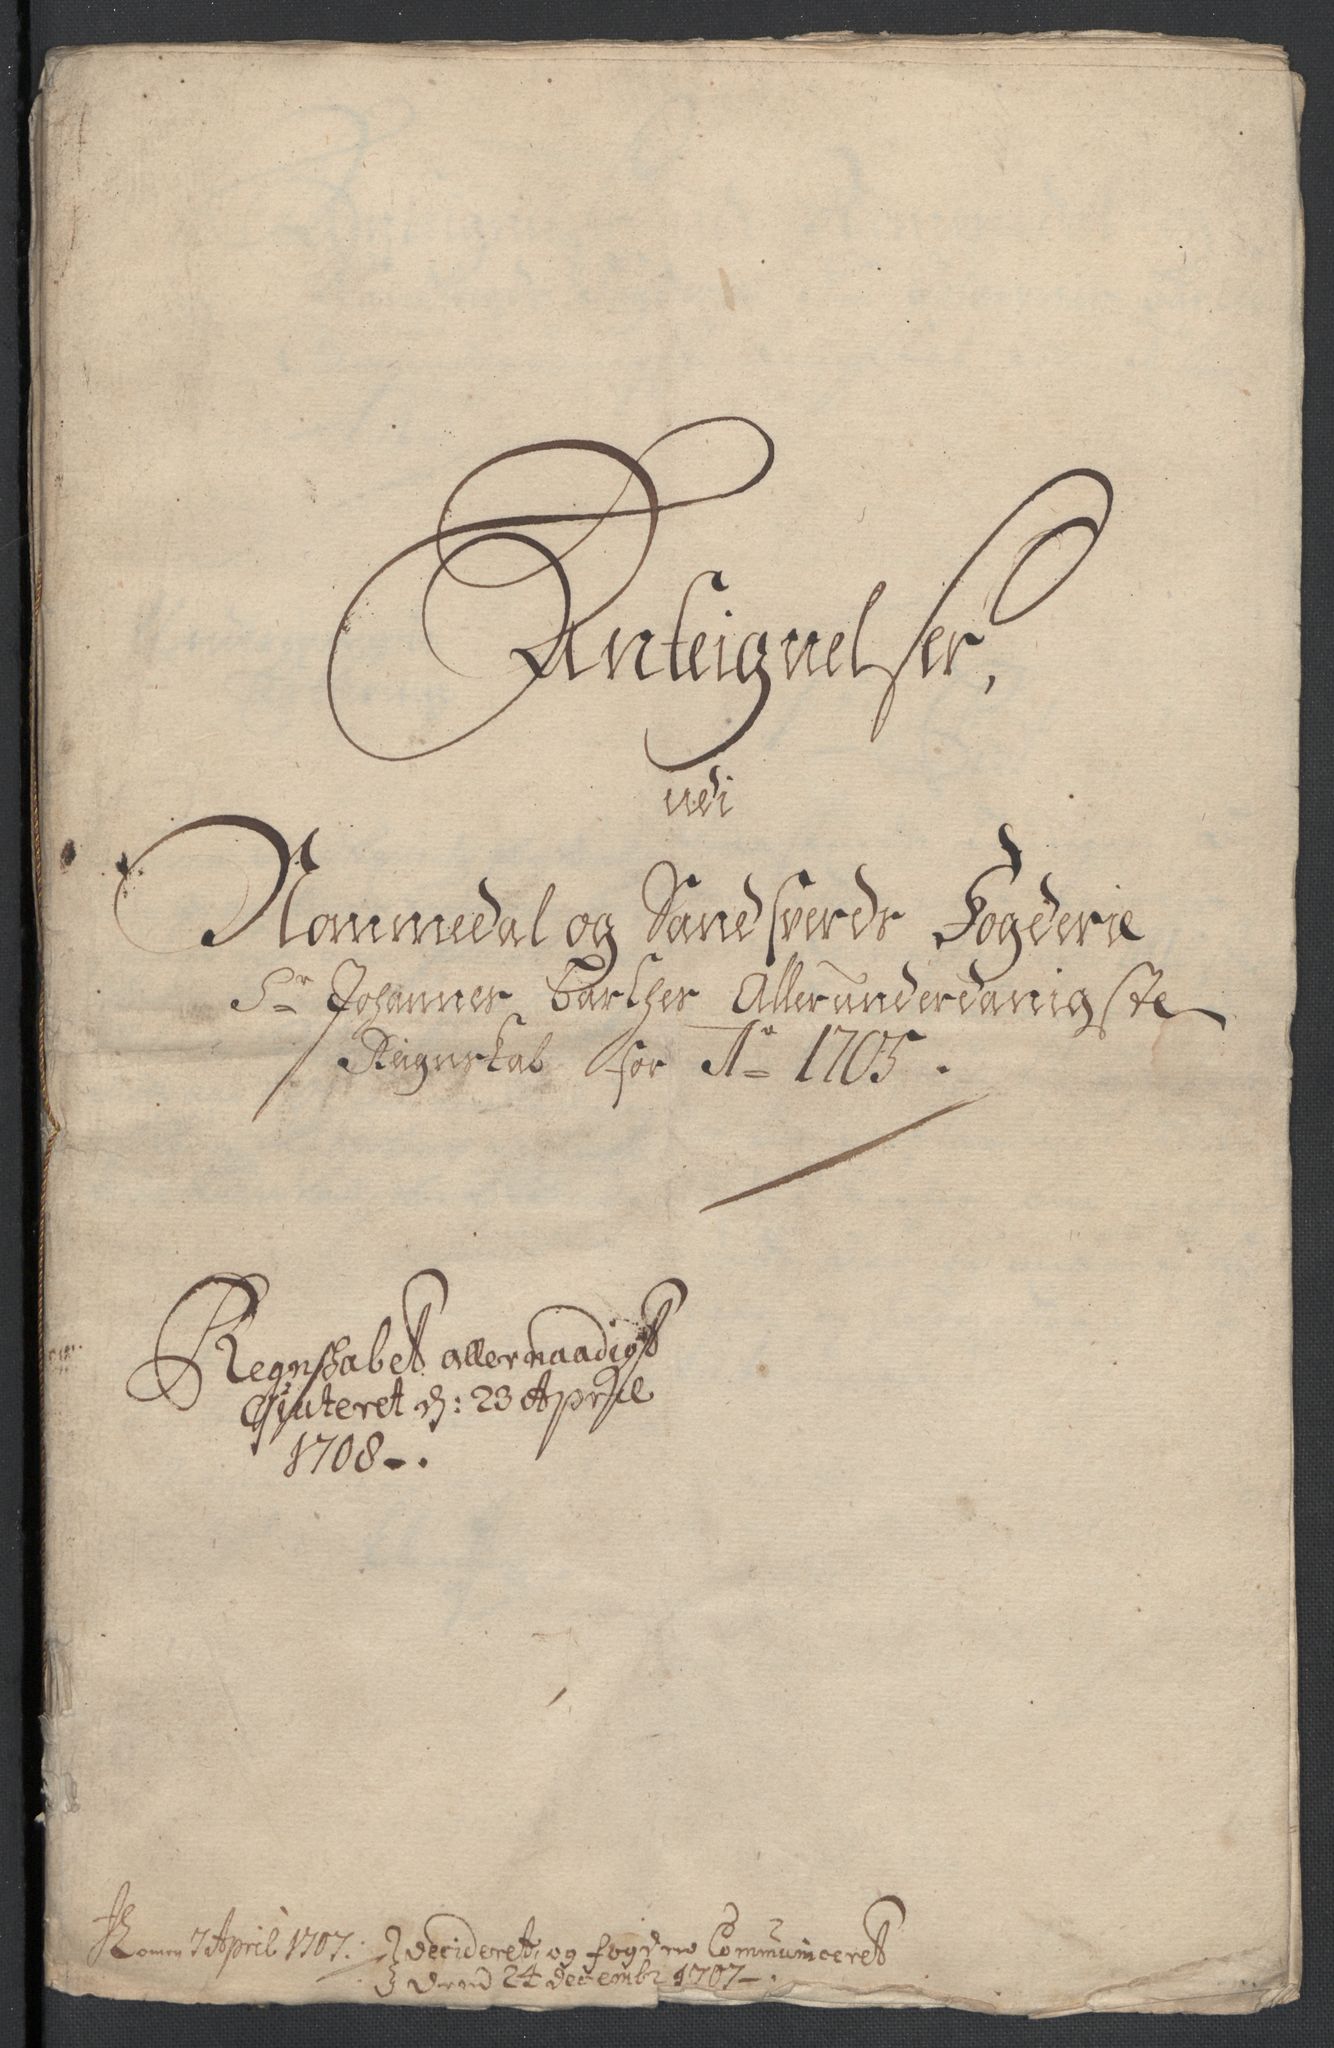 Anteignelser,
udi
Nommedal og Sandsverds Fogderie
Sr Johannes Barthes Allerunderdanigste
Reignskab for Ao 1705.
Regnskabet allernaadigst
Qviteret d: 23 April
1708-.
Komen 7 April 1707.
decideret, og fogden Communiceret
dend 24 decembr 1707-.